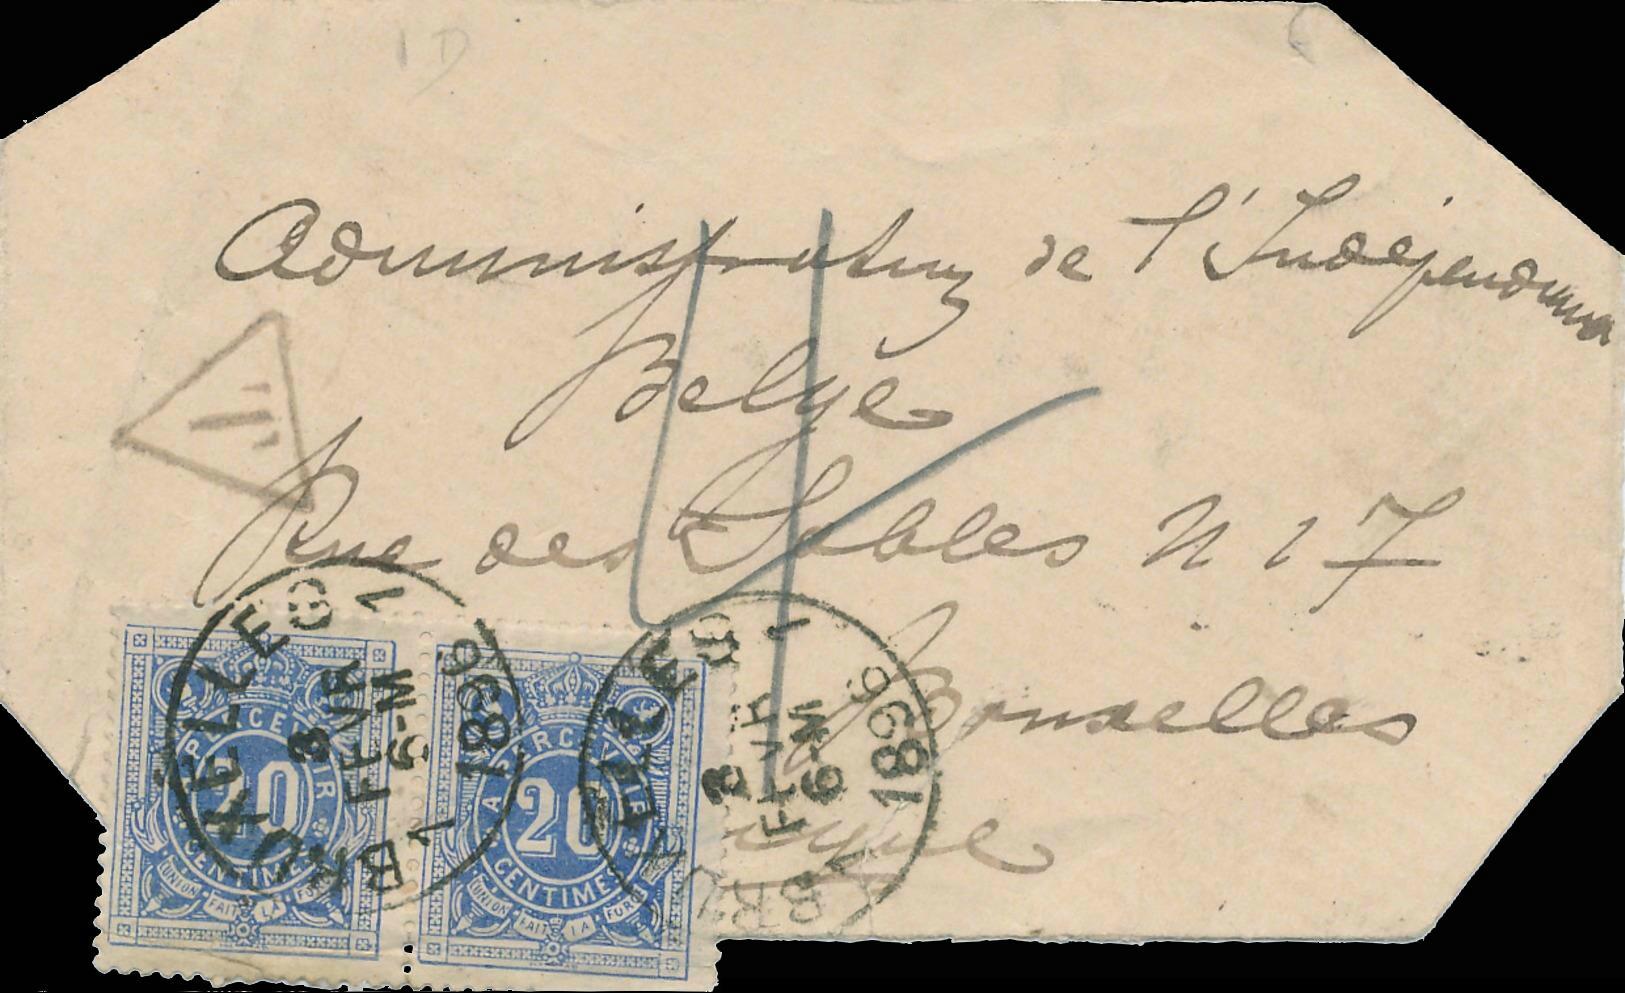 1D
Administration de l'Indépendance
Belge
Rue des Sables N 17
Bruxelles
BRUXELLES 1
3
FEVR
6-M
1896
BRUXELLES 1
3
FEVR
6-M
1896
A PERCEVOIR
20
CENTIMES
UNION FAIT LA FORCE
A PERCEVOIR
20
CENTIMES
UNION FAIT LA FORCE